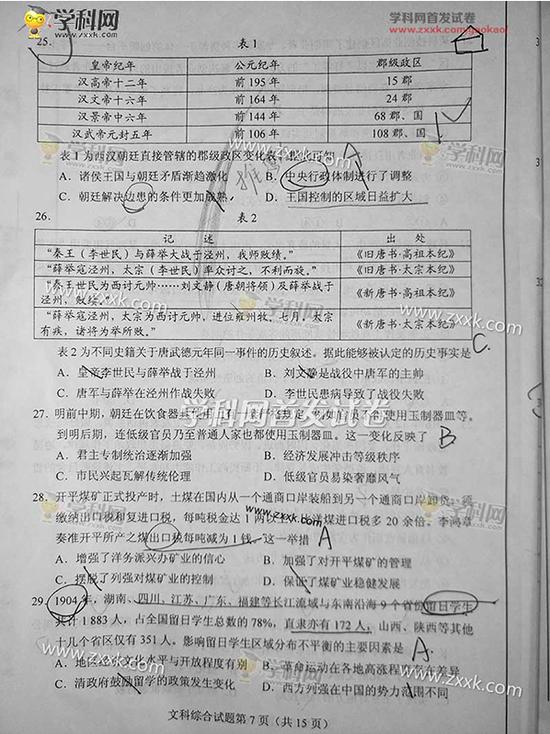 学科网
zxxk.com
学科网首发试卷
www.zxxk.com/gaokao/
25.
表1
皇帝纪年 公元纪年 郡级政区
汉高帝十二年 前195年 15郡
汉文帝十六年 前164年 24郡
汉景帝中六年 前144年 68郡、国
汉武帝元封五年 前106年 108郡、国
表1为西汉朝廷直接管辖的郡级政区变化表。据此可知 A
A. 诸侯王国与朝廷矛盾渐趋激化 B. 中央行政体制进行了调整
C. 朝廷解决边患的条件更加成熟 D. 王国控制的区域日益扩大
26.
表2
记 述 出 处
“秦王（李世民）与薛举大战于泾州，我师败绩。” 《旧唐书·高祖本纪》
“薛举寇泾州，太宗（李世民）率众讨之，不利而旋。” 《旧唐书·太宗本纪》
“秦王世民为西讨元帅……刘文静（唐朝将领）及薛举战于泾州，败绩。” 《新唐书·高祖本纪》
“薛举寇泾州，太宗为西讨元帅，进位雍州牧。七月，太宗有疾，诸将为举所败。” 《新唐书·太宗本纪》
C.
表2为不同史籍关于唐武德元年同一事件的历史叙述。据此能够被认定的历史事实是
A. 皇帝李世民与薛举战于泾州 B. 刘文静是战役中唐军的主帅
C. 唐军与薛举在泾州作战失败 D. 李世民患病导致了战役失败
27. 明前中期，朝廷在饮食器具使用上有一套严格规定，例如官员不得使用玉制器皿等。
到明后期，连低级官员乃至普通人家也都使用玉制器皿。这一变化反映了 B
A. 君主专制统治逐渐加强 B. 经济发展冲击等级秩序
C. 市民兴起瓦解传统伦理 D. 低级官员易染奢靡风气
28. 开平煤矿正式投产时，土煤在国内从一个通商口岸装船到另一个通商口岸卸货，须
缴纳出口税和复进口税，每吨税金达1两以上，比洋煤进口税多20余倍。李鸿章
奏准开平所产之煤出口税每吨减为1钱。这一举措 A
A. 增强了洋务派兴办矿业的信心 B. 加强了对开平煤矿的管理
C. 摆脱了列强对煤矿业的控制 D. 保证了煤矿业稳健发展
29. 1904年，湖南、四川、江苏、广东、福建等长江流域与东南沿海9个省份留日学生
共计1 883人，占全国留日学生总数的78%，直隶亦有172人，山西、陕西等其他
十几个省区仅有351人。影响留日学生区域分布不平衡的主要因素是 A.
A. 地区经济文化水平与开放程度有别 B. 革命运动在各地高涨程度存在差异
C. 清政府鼓励留学的政策发生变化 D. 西方列强在中国的势力范围不同
文科综合试题第7页（共15页）